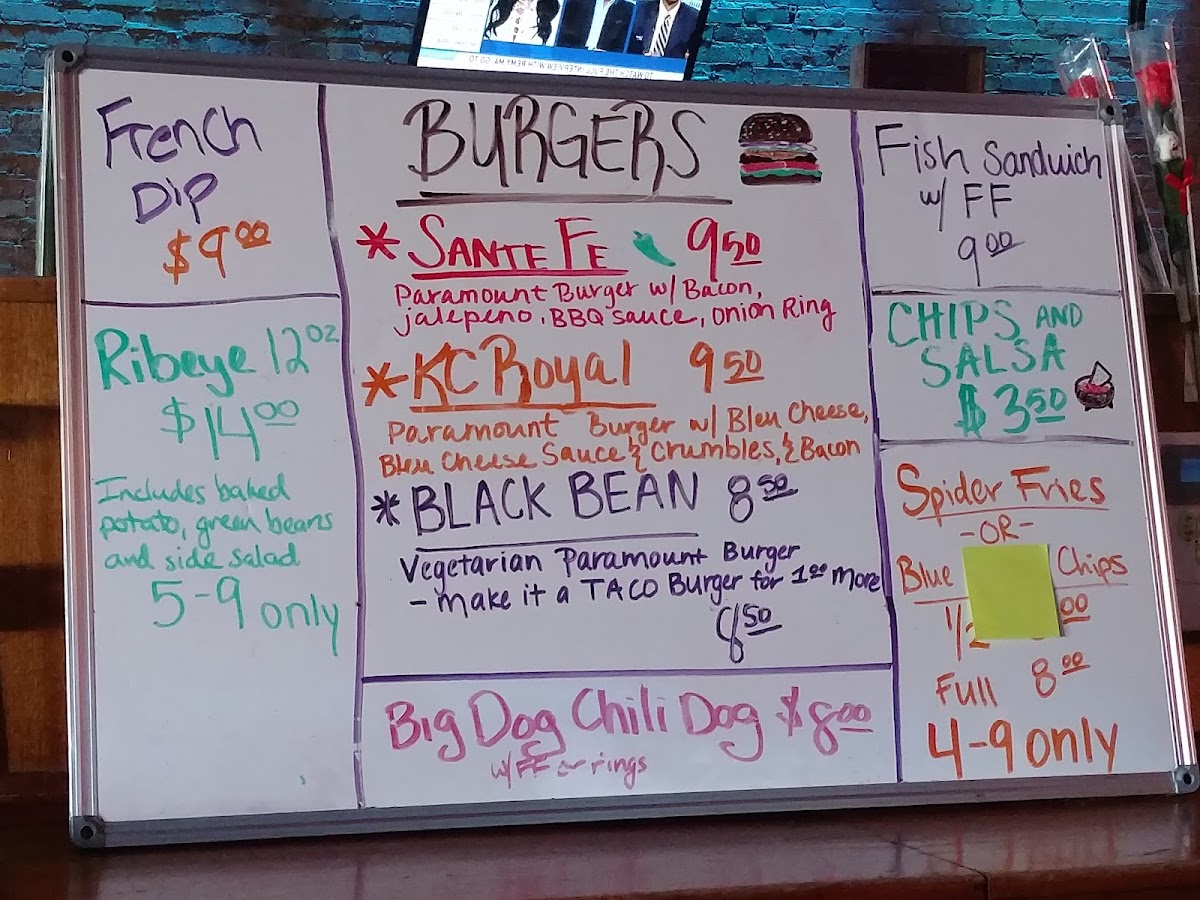 TO WATCH THE FULL INTERVIEW WITH REMY MA, GO TO
French
Dip
$9.00
Ribeye 12 oz
$14.00
Includes baked
potato, green beans
and side salad
5-9 only
BURGERS
* SANTE FE 9.50
Paramount Burger w/ Bacon,
jalepeno, BBQ sauce, onion Ring
* KC Royal 9.50
Paramount Burger w/ Bleu Cheese,
Bleu Cheese Sauce & Crumbles, & Bacon
* BLACK BEAN 8.50
Vegetarian Paramount Burger
- make it a TACO Burger for 1.00 more
8.50
Big Dog Chili Dog $8.00
w/ FF or rings
Fish Sandwich
w/ FF
9.00
CHIPS AND
SALSA
$3.50
Spider Fries
-OR-
Blue Chips
1/2 00
Full 8.00
4-9 only